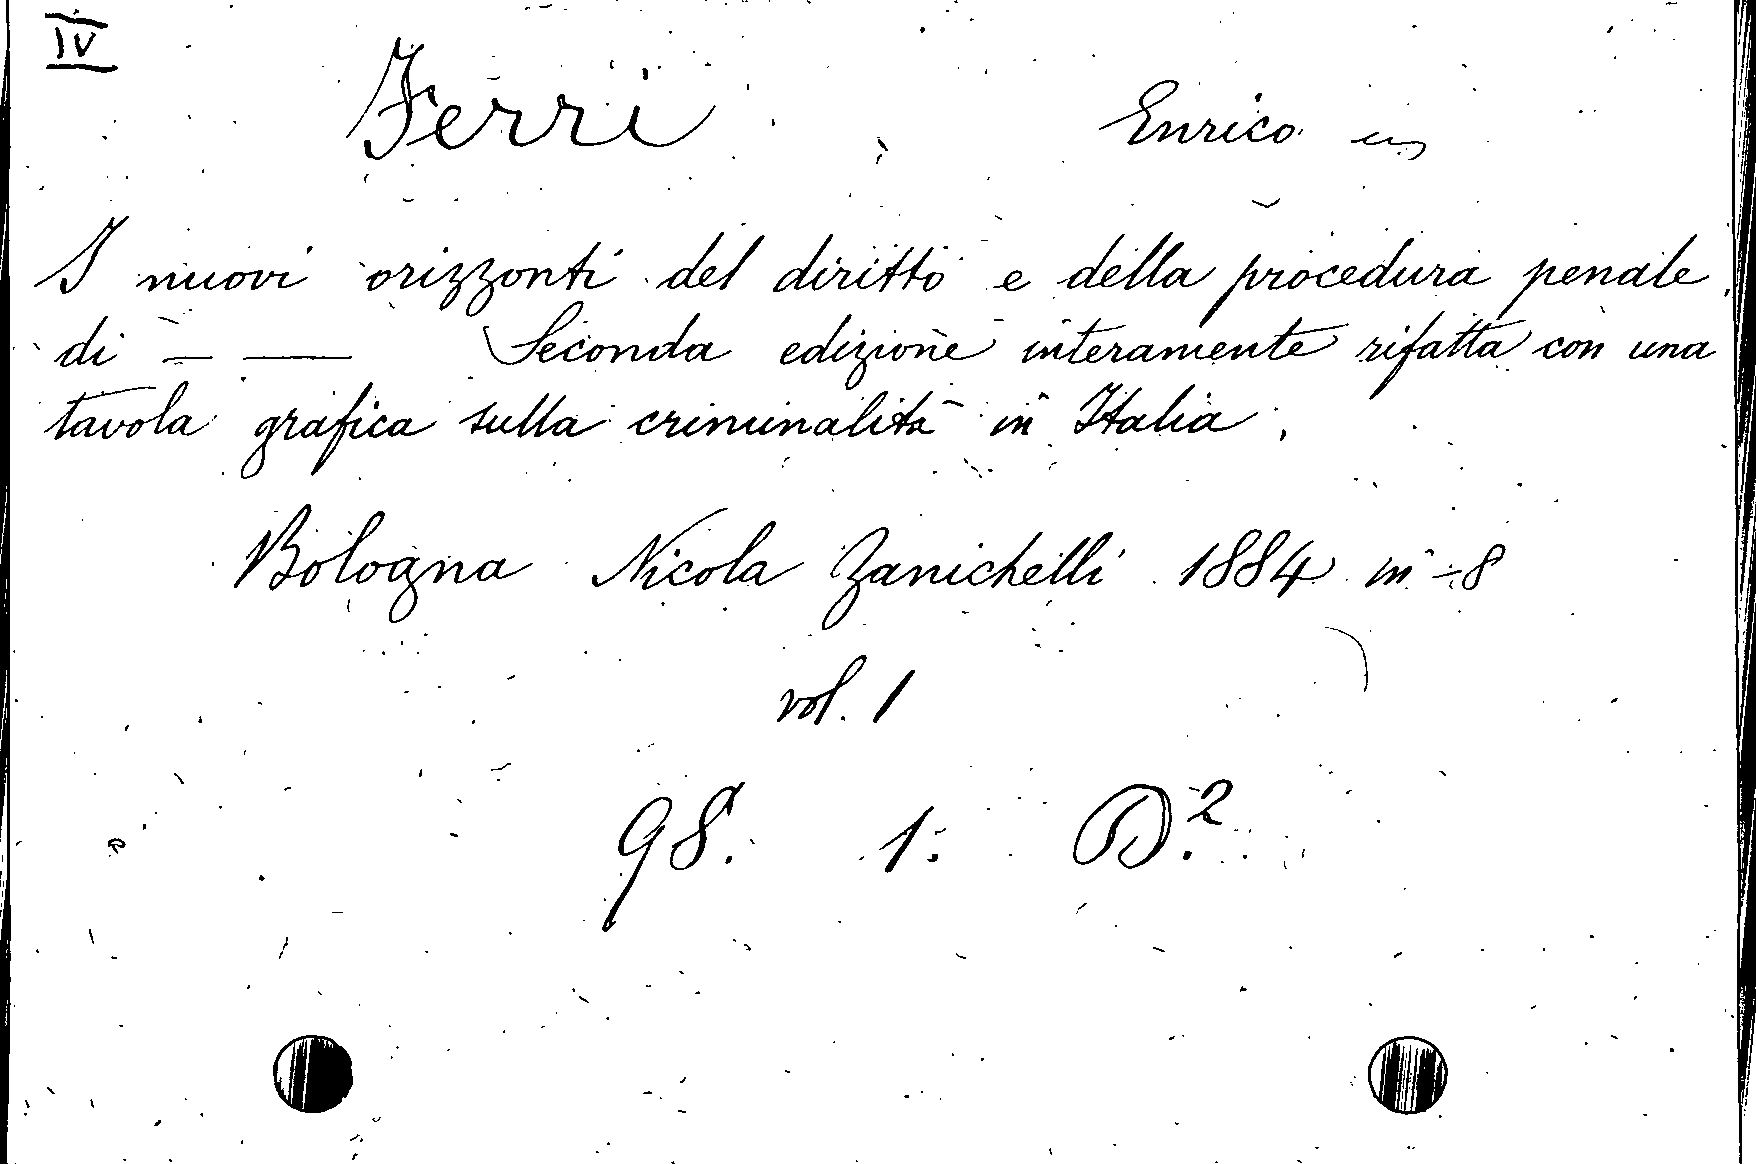 IV
Ferri Enrico
I nuovi orizzonti del diritto e della procedura penale
di — — Seconda edizione interamente rifatta con una
tavola grafica sulla criminalità in Italia.
Bologna Nicola Zanichelli 1884 in-8
vol. 1
98. 1. D.2